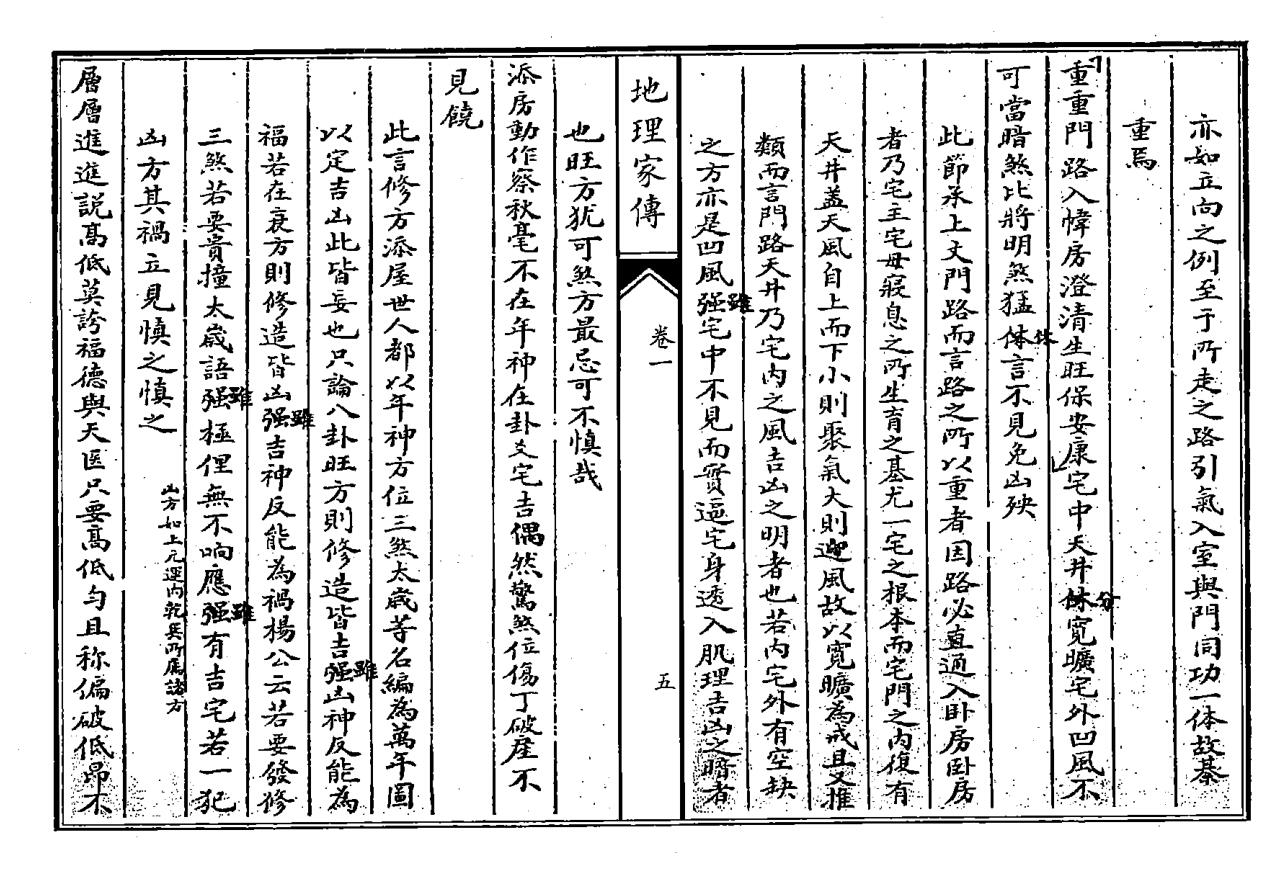 亦如立向之例至于所走之路引氣入室與門同功一体故綦
重焉
重重門路入幃房澄清生旺保安康宅中天井休分寛曠宅外凹風不
可當暗煞比將明煞猛休休言不見免凶殃
此節承上文門路而言路之所以重者因路必直通入卧房卧房
者乃宅主宅母寢息之所生育之基尤一宅之根本而宅門之内復有
天井盖天風自上而下小則聚氣大則迎風故以寛曠為戒且又推
類而言門路天井乃宅内之風吉凶之明者也若内宅外有空缺
之方亦是凹風强雖宅中不見而實逼宅身透入肌理吉凶之暗者
地理家傳
卷一
五
也旺方犹可煞方最忌可不慎哉
添房動作察秋毫不在年神在卦爻宅吉偶然驚煞位傷丁破産不
見饒
此言修方添屋世人都以年神方位三煞太歲等名編為萬年圖
以定吉凶此皆妄也只論八卦旺方則修造皆吉强雖凶神反能為
福若在衰方則修造皆凶强雖吉神反能為禍楊公云若要發修
三煞若要貴撞太歲語强雖極俚無不响應强雖有吉宅若一犯
凶方其禍立見慎之慎之
凶方如上元運内乾兵所屬諸方
層層進進説髙低莫誇福德與天医只要髙低勻且称偏破低昂不